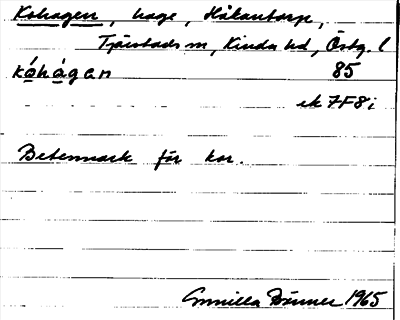 Kohagen, hage, Håkantorp,
Tjärstads sn, Kinda hd, Östg. l
kóhàgan 85
ek 7F8i
Betesmark för kor.
Gunilla Bonner 1965